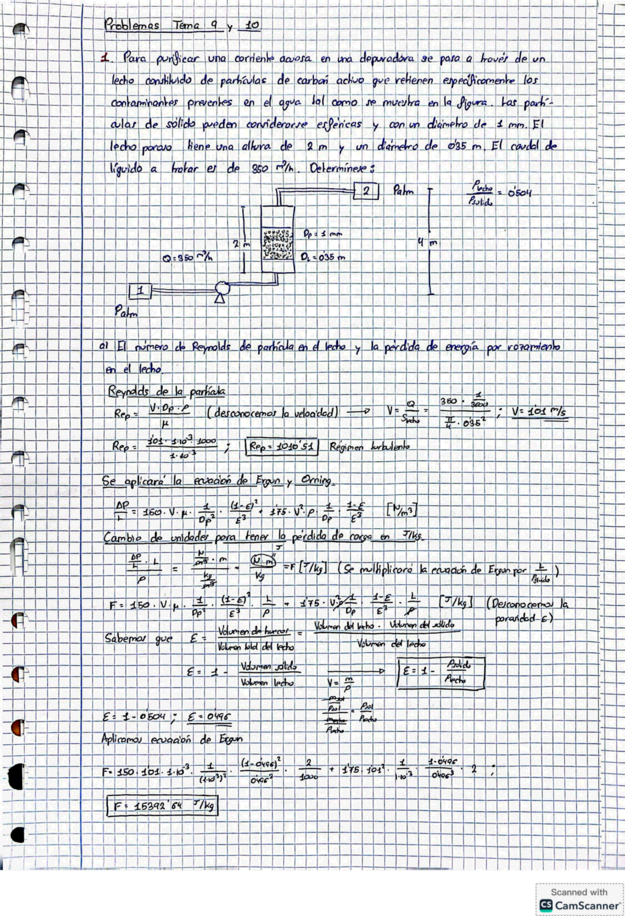 Problemas Tema 9 y 10
1. Para purificar una corriente acuosa en una depuradora se pasa a través de un
lecho constituido de partículas de carbón activo que retienen específicamente los
contaminantes presentes en el agua tal como se muestra en la figura. Las partí-
culas de sólido pueden considerarse esféricas y con un diámetro de 1 mm. El
lecho poroso tiene una altura de 2 m y un diámetro de 0'35 m. El caudal de
líquido a tratar es de 350 m³/h. Determínese:
2 Patm
ρlecho/ρsólido = 0'504
2 m
Dp = 1 mm
4 m
Q = 350 m³/h
DL = 0'35 m
1
Patm
a) El número de Reynolds de partícula en el lecho y la pérdida de energía por rozamiento
en el lecho
Reynolds de la partícula
Rep = V·Dp·ρ/μ (desconocemos la velocidad) → V = Q/Slecho = 350 · 1/3600 / π/4 · 0'35² ; V = 1'01 m/s
Rep = 1'01 · 1·10⁻³ · 1000 / 1·10⁻³ ; Rep = 1010'51 Régimen turbulento
Se aplicará la ecuación de Ergun y Orning.
ΔP/L = 150 · V · μ · 1/Dp² · (1-ε)²/ε³ + 1'75 · V² · ρ · 1/Dp · 1-ε/ε³ [N/m³]
Cambio de unidades para tener la pérdida de carga en J/kg.
ΔP/L · L / ρ = N/m³ · m / kg/m³ = N·m/kg = F [J/kg] (Se multiplicará la ecuación de Ergun por L/ρfluido)
F = 150 · V · μ · 1/Dp² · (1-ε)²/ε³ · L/ρ + 1'75 · V² · 1/Dp · 1-ε/ε³ · L/ρ [J/kg] (Desconocemos la
porosidad ε)
Sabemos que ε = Volumen de huecos/Volumen total del lecho = Volumen del lecho - Volumen del sólido/Volumen del lecho
ε = 1 - Volumen sólido/Volumen lecho → V = m/ρ ε = 1 - ρsólido/ρlecho
ε = 1 - 0'504 ; ε = 0'496
Aplicamos ecuación de Ergun
F = 150 · 1'01 · 1·10⁻³ · 1/(1·10⁻³)² · (1-0'496)²/0'496³ · 2/1000 + 1'75 · 1'01² · 1/1·10⁻³ · 1-0'496/0'496³ · 2 ;
F = 15392'64 J/kg
Scanned with
CS CamScanner